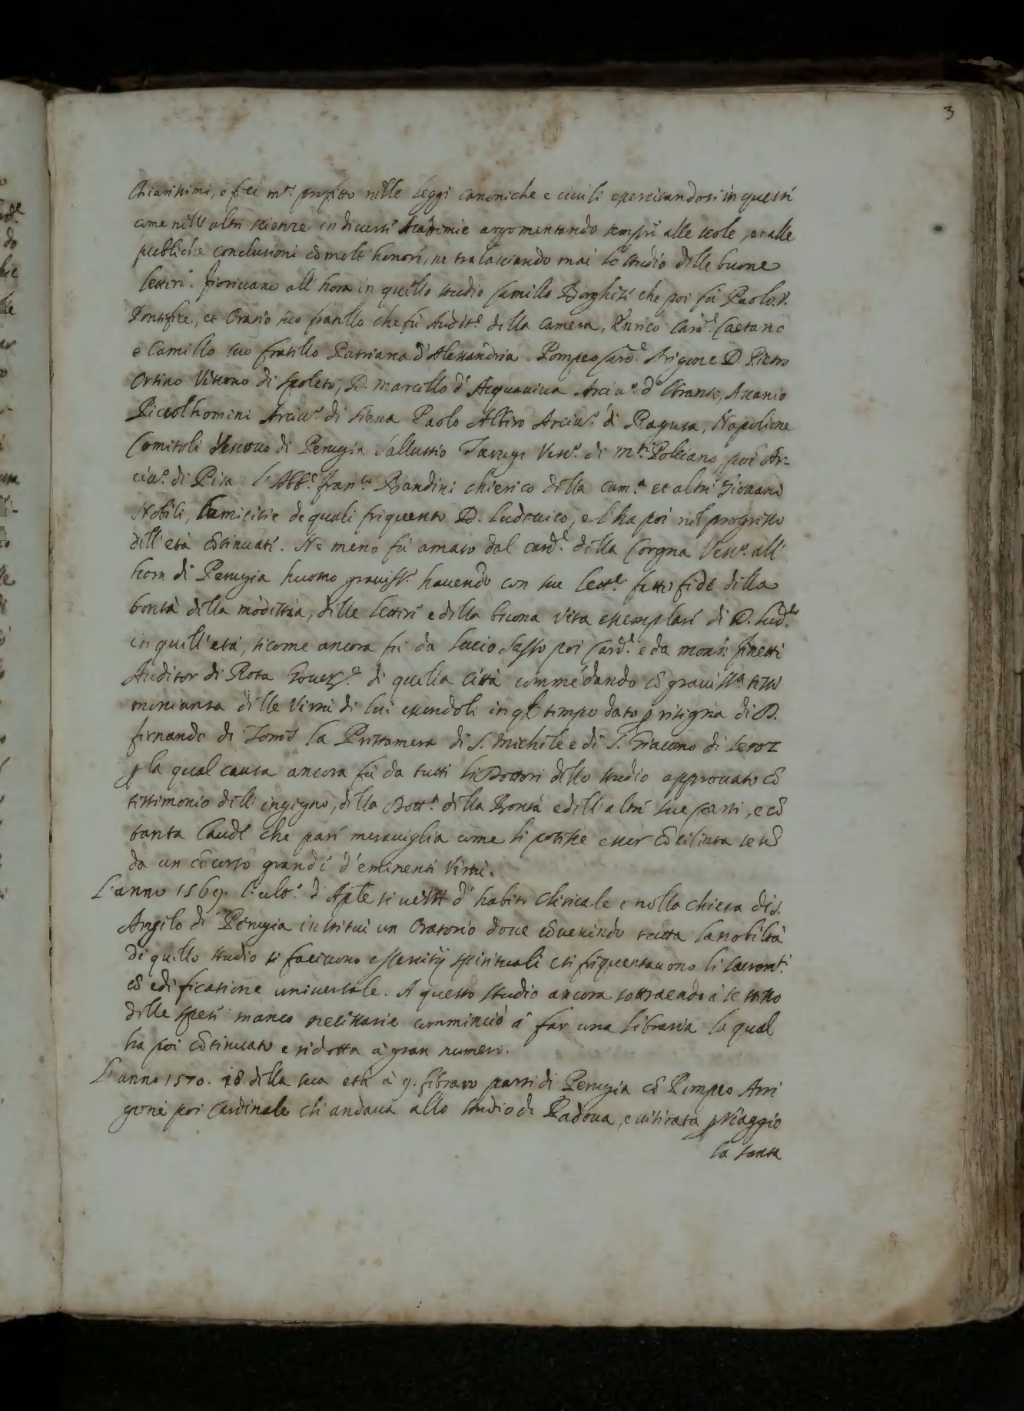 3
Chiarissimi, e fece m.to profitto nelle leggi canoniche e ciuili exercitandosi in questi
come nell altri scienze in diuersi Academie argomentando sempri alle scole, et alle
publiche conclusioni cō molti honori, ne tralasciando mai lo studio delle buone
lettiri. fioriuano all' hora in quello studio Camillo Borghesi che poi fù Paolo V.
Pontefice, et Oratio suo fratello che fù Audit.e della Camera, Enrico Card.l Caetano
e Camillo suo fratello Patriarca d'Alessandria. Pompeo Card.l Arigone D. Pietro
Orsino Vescouo di Spoleto, D. Marcello d' Acquauiua Arciu.o d' Otranto, Ascanio
Piccolhomini Arciu.o di Siena Paolo Albero Arciu.o di Ragusa, Napolione
Comitoli Vescouo di Perugia Sallustio Tarugi Vesc.o di m.te Polciano poi Ar-
ciu.o di Pisa l'Abb.e fran.co Bandini chierico della cam.a et altri Giouani
Nobili, l'amicitie de quali frequento D. Ludouico, e l' ha poi nel progresso
dell' età cōtinuati. Ne meno fù amato dal card.l della Corgna Vesc.o all'
hora di Perugia huomo grauiss.o hauendo con sue lett.e fatti fide della
bontà della modestia, delle lettiri e della buona vita exemplari di D. Lud.co
in quell' età, sicome ancora fù da Lucio Sasso poi Card.l e da mons.r finetti
Auditor di Rota Gouer.e di quella città commēdando cō grauiss.a testi
monianza delle virtù di lui essendoli in q.l tempo dato p risigna di D.
firnando di Torres la Prestamera di S. Michele e di S. Giacomo di Seroz
p la qual causa ancora fù da tutti li Dottori dello studio approuato cō
testimonio dell' ingegno, della Dott.a della Bontà e dell' altri sue parti, e cō
tanta laude che pari merauiglia come si potisse esser cōciliata se nō
da un cōcorso grandi d' eminenti virtù.
L' anno 1569. l' ult.o d' Aple si uestì d' habiti clericale e nella chiesa di S.
Angelo di Perugia instituì un Oratorio doue cōuenendo tutta la nobiltà
di quello studio si faceuono essercitij spirituali et si frequentauono li sacram.ti
cō edificatione uniuersale. A questo studio ancora sottraendo à se stesso
delle spesi manco necessarie comminciò à far una libraria la qual
ha poi cōtinuato e ridotta à gran numero.
L' anno 1570. 18 della sua età à 9. febraro partì di Perugia cō Pompeo Arri
goni poi Cardinale chi andaua allo studio di Padoua, e uisitata p Viaggio
la santa